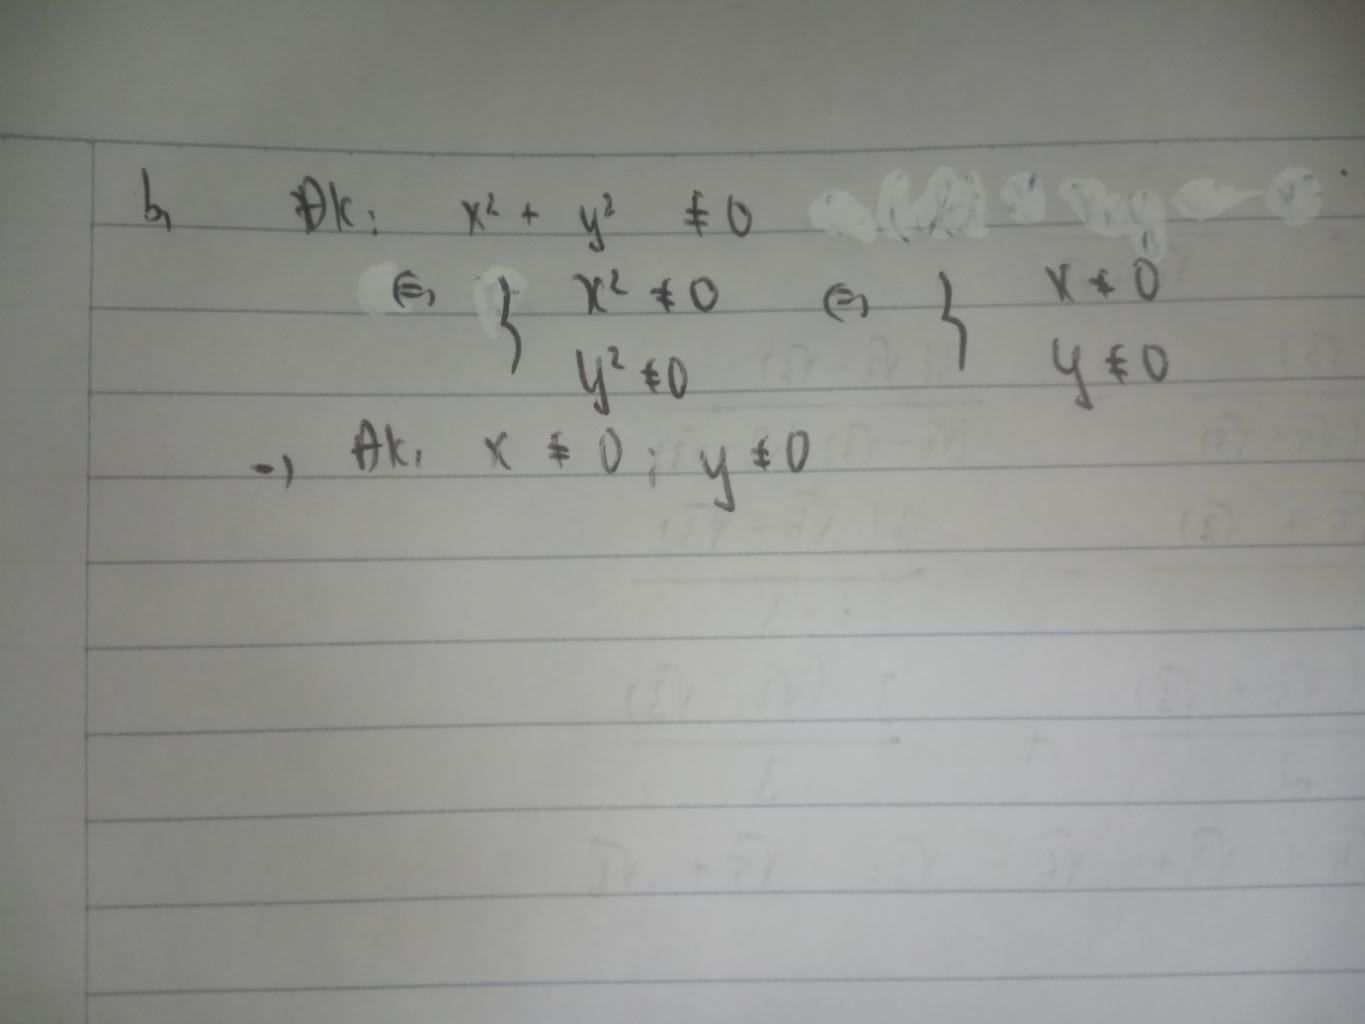 b, Đk: x² + y² ≠ 0
⇔ } x² ≠ 0 ⇔ } x ≠ 0
y² ≠ 0 y ≠ 0
→ Đk: x ≠ 0 ; y ≠ 0